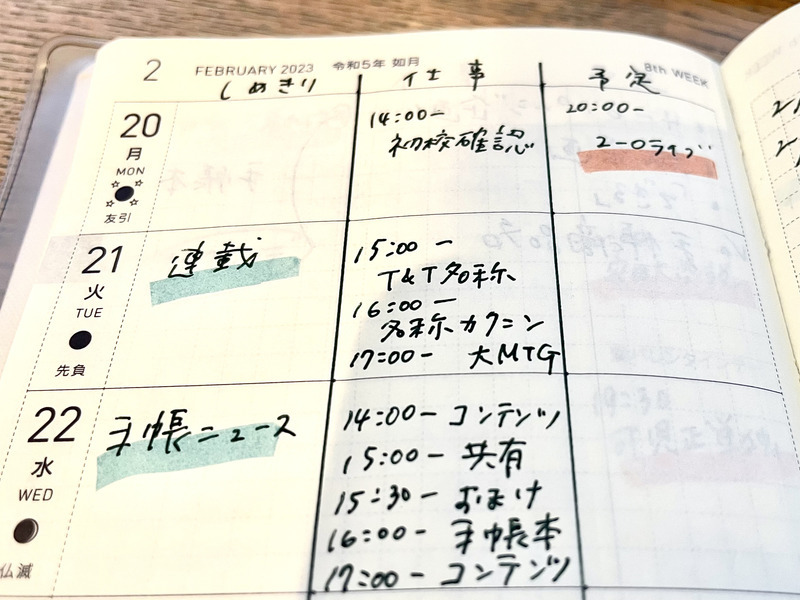 2 FEBRUARY 2023 令和5年 如月 8th WEEK
しめきり 仕事 予定
20
月
MON
友引
14:00-
初校確認
20:00-
2-0ライブ
21
火
TUE
先負
連載
15:00-
T&T名称
16:00-
名称カクニン
17:00- 大MTG
22
水
WED
仏滅
手帳ニュース
14:00-コンテンツ
15:00-共有
15:30-おまけ
16:00-手帳本
17:00-コンテンツ